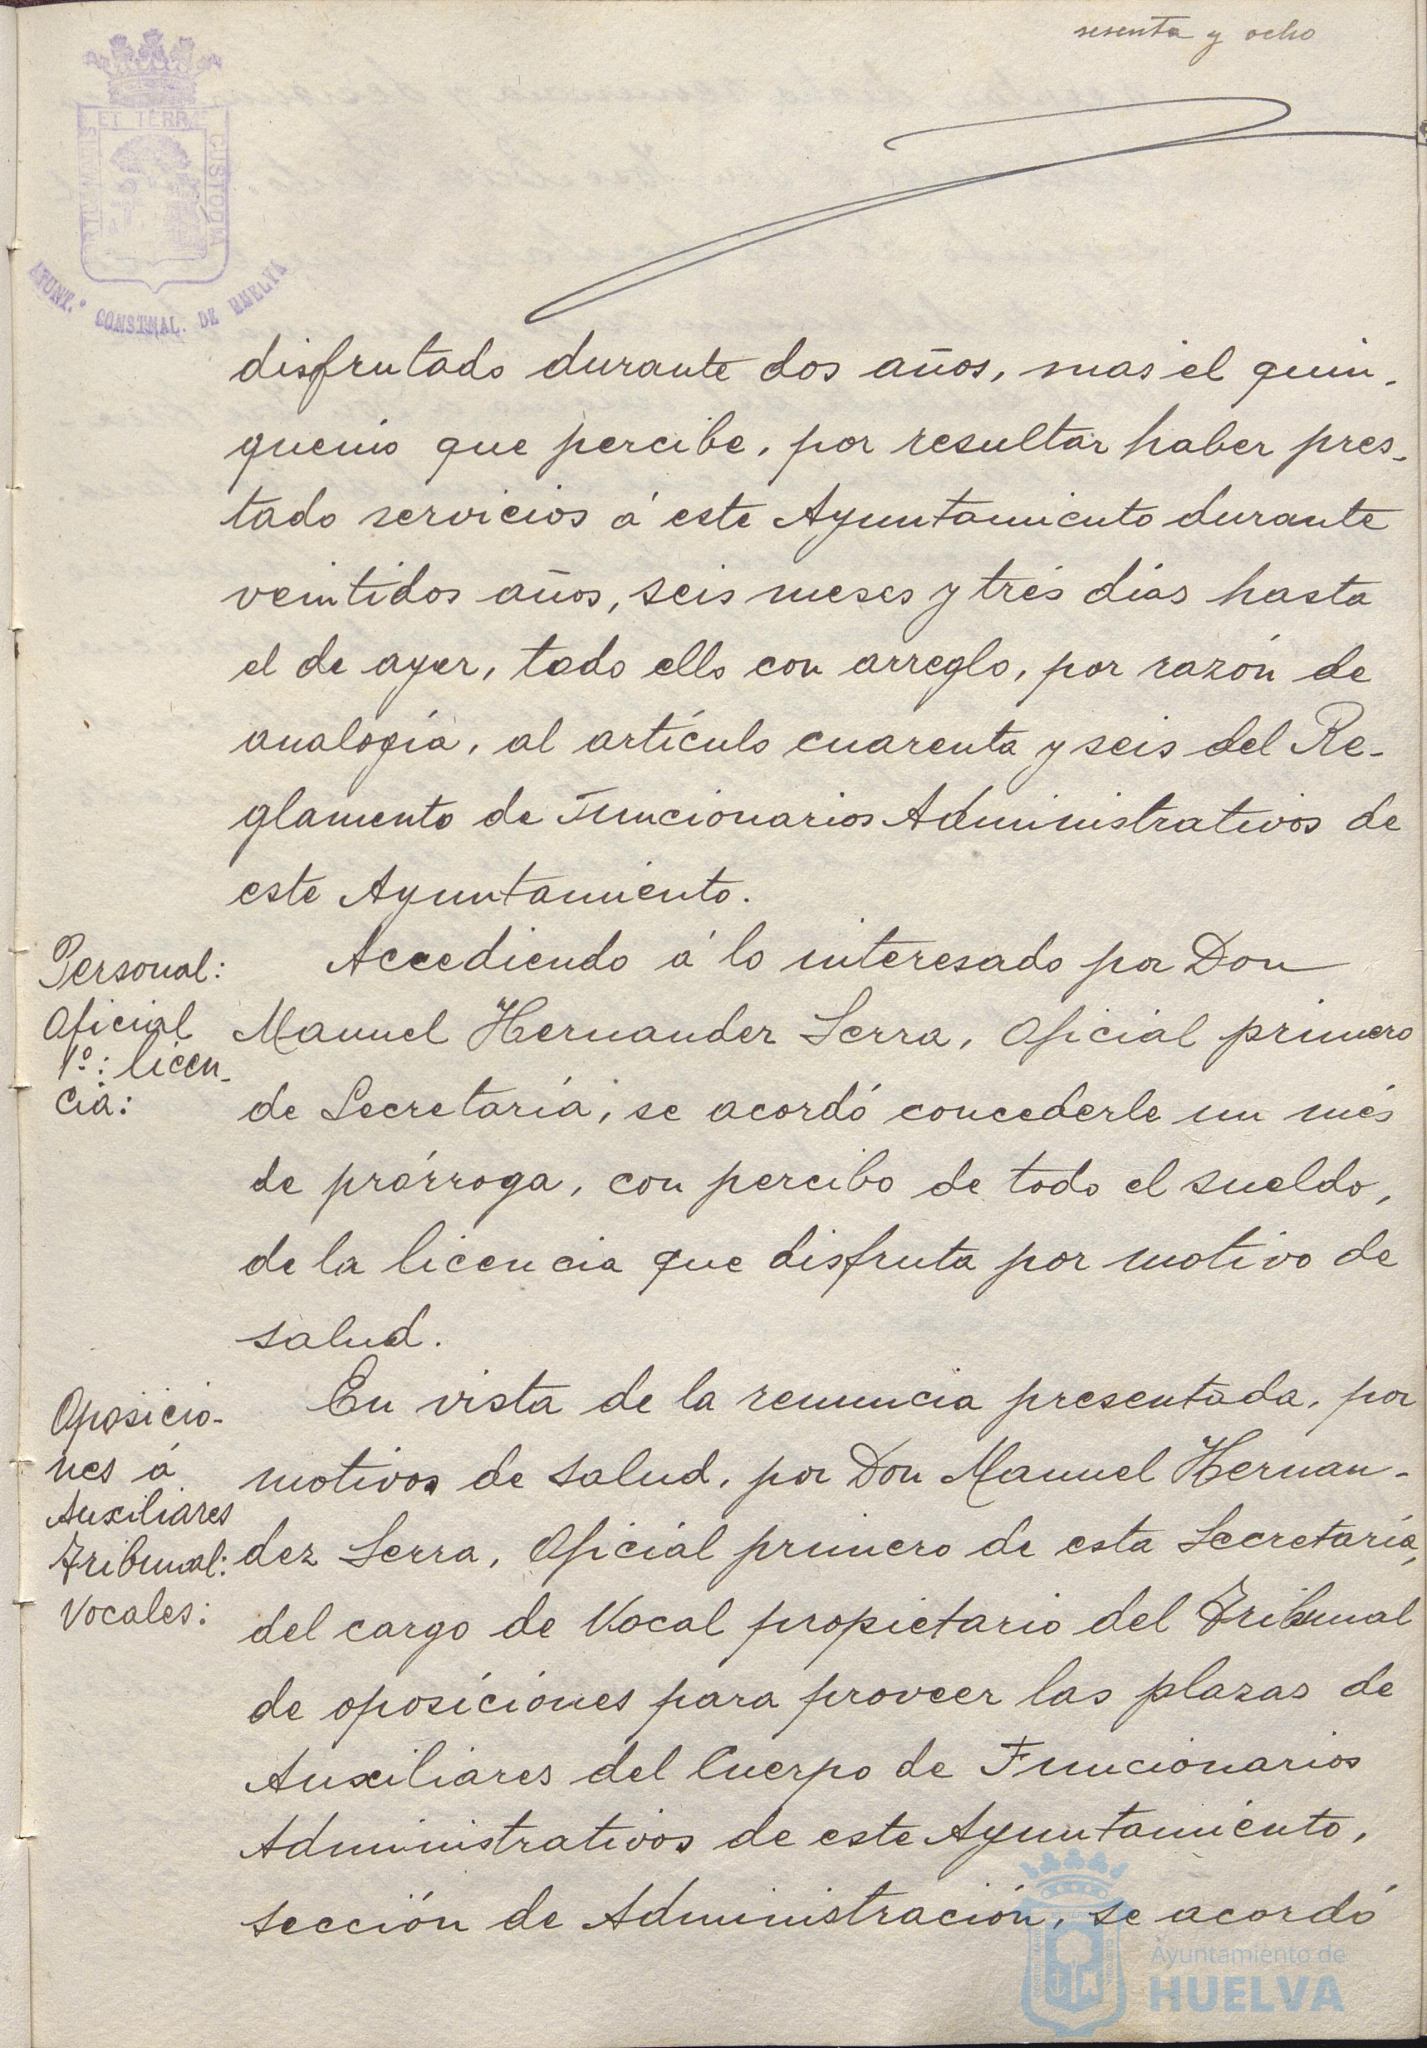 sesenta y ocho
PORTUS MARIS ET TERRÆ CUSTODIA
AYUNT.º CONSTNAL. DE HUELVA
disfrutado durante dos años, mas el quin-
quenio que percibe, por resultar haber pres-
tado servicios á este Ayuntamiento durante
veintidos años, seis meses y trés días hasta
el de ayer, todo ello con arreglo, por razón de
analogía, al artículo cuarenta y seis del Re-
glamento de Funcionarios Administrativos de
este Ayuntamiento.
Personal:
Oficial
1º: licen-
cia:
Accediendo á lo interesado por Don
Manuel Hernander Serra, Oficial primero
de Secretaría, se acordó concederle un més
de prórroga, con percibo de todo el sueldo,
de la licencia que disfruta por motivo de
salud.
Oposicio-
nes á
Auxiliares
Tribunal:
Vocales:
En vista de la renuncia presentada, por
motivos de salud, por Don Manuel Hernan-
dez Serra, Oficial primero de esta Secretaría,
del cargo de Vocal propietario del Tribunal
de oposiciones para proveer las plazas de
Auxiliares del Cuerpo de Funcionarios
Administrativos de este Ayuntamiento,
sección de Administración, se acordó
Ayuntamiento de
HUELVA